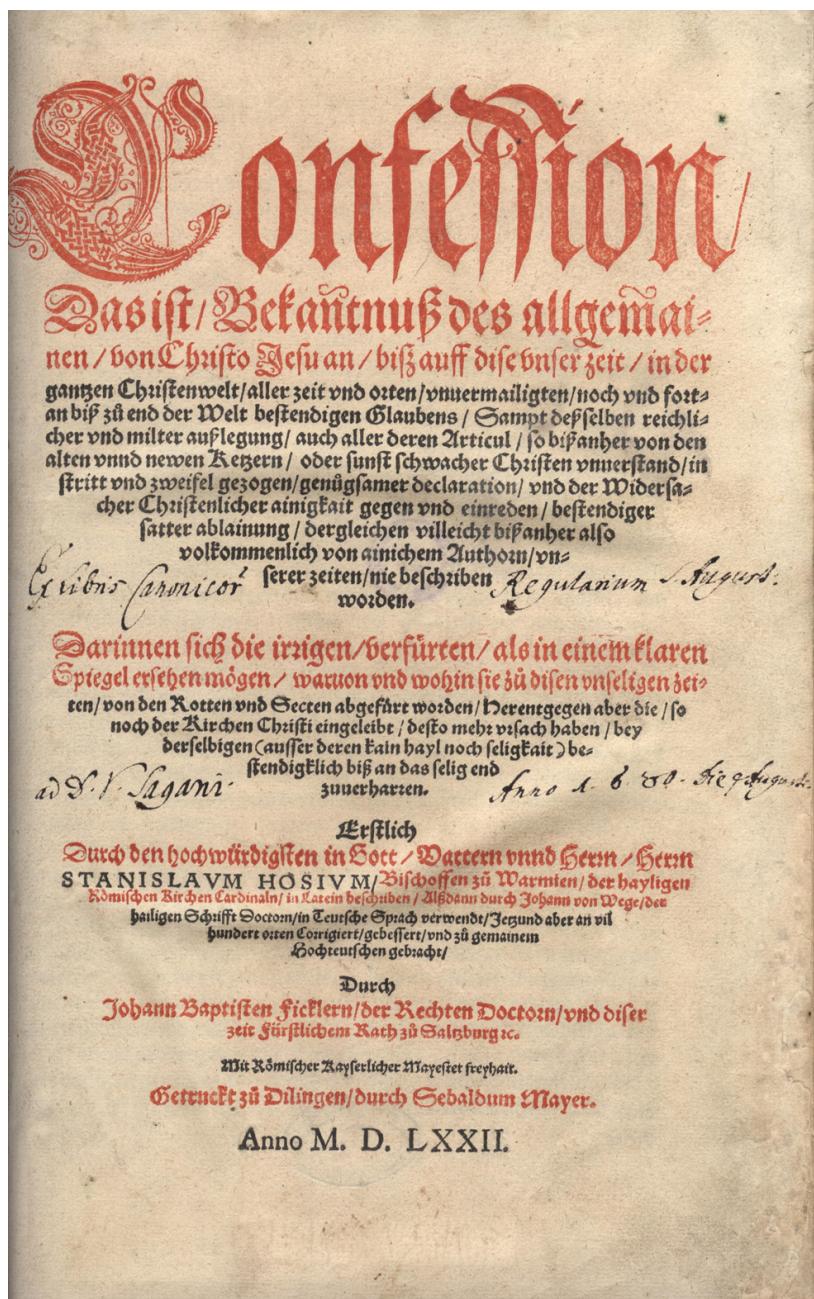 Confession/
Das ist/ Bekañtnuß des allgem̃ai-
nen/ von Christo Jesu an/ biß auff dise vnser zeit/ in der
gantzen Christenwelt/ aller zeit vnd orten/ vnuermailigten/ noch vnd fort-
an biß zů end der Welt bestendigen Glaubens/ Sampt deßselben reichli-
cher vnd milter außlegung/ auch aller deren Articul/ so bißanher von den
alten vnnd newen Ketzern/ oder sunst schwacher Christen vnuerstand/ in
stritt vnd zweifel gezogen/ genůgsamer declaration/ vnd der Widersa-
cher Christenlicher ainigkait gegen vnd einreden/ bestendiger
satter ablainung/ dergleichen villeicht bißanher also
volkommenlich von ainichem Authorn/ vn-
serer zeiten/ nie beschriben
worden.
Ex libris Canonicor̃ Regularium S. August.
Darinnen sich die irrigen/ verfürten/ als in einem klaren
Spiegel ersehen mögen/ waruon vnd wohin sie zů disen vnseligen zei-
ten/ von den Rotten vnd Secten abgefürt worden/ Herentgegen aber die/ so
noch der Kirchen Christi eingeleibt/ desto mehr vrsach haben/ bey
derselbigen (ausser deren kain hayl noch seligkait) be-
stendigklich biß an das selig end
zuuerharren.
ad B. V. Sagani. Anno 1680. die 9 August.
Erstlich
Durch den hochwürdigsten in Gott/ Vattern vnnd Herrn/ Herrn
STANISLAVM HOSIVM/ Bischoffen zů Warmien/ der hayligen
Römischen Kirchen Cardinaln/ in Latein beschriben/ Alßdann durch Johann von Wege/ der
hailigen Schrifft Doctorn/ in Teutsche Sprach verwendt/ Jetzund aber an vil
hundert orten Corrigiert/ gebessert/ vnd zů gemainem
Hochteutschen gebracht/
Durch
Johann Baptisten Ficklern/ der Rechten Doctorn/ vnd diser
zeit Fürstlichem Rath zů Saltzburg ꝛc.
Mit Römischer Kayserlicher Mayestet freyhait.
Getruckt zů Dilingen/ durch Sebaldum Mayer.
Anno M. D. LXXII.